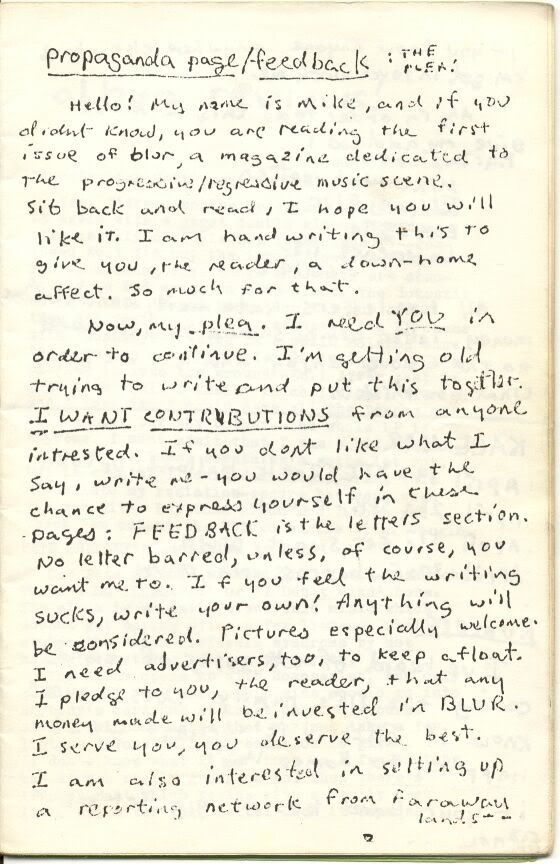 propaganda page/feedback : THE PLEA!
Hello! My name is Mike, and if you
didnt know, you are reading the first
issue of blur, a magazine dedicated to
the progressive/regressive music scene.
Sit back and read, I hope you will
like it. I am handwriting this to
give you, the reader, a down-home
affect. So much for that.
Now, my plea. I need YOU in
order to continue. I'm getting old
trying to write and put this together.
I WANT CONTRIBUTIONS from anyone
intrested. If you dont like what I
say, write me - you would have the
chance to express yourself in these
pages: FEEDBACK is the letters section.
No letter barred, unless, of course, you
want me to. If you feel the writing
sucks, write your own! Anything will
be considered. Pictures especially welcome.
I need advertisers, too, to keep afloat.
I pledge to you, the reader, that any
money made will be invested in BLUR.
I serve you, you deserve the best.
I am also interested in setting up
a reporting network from faraway
lands--